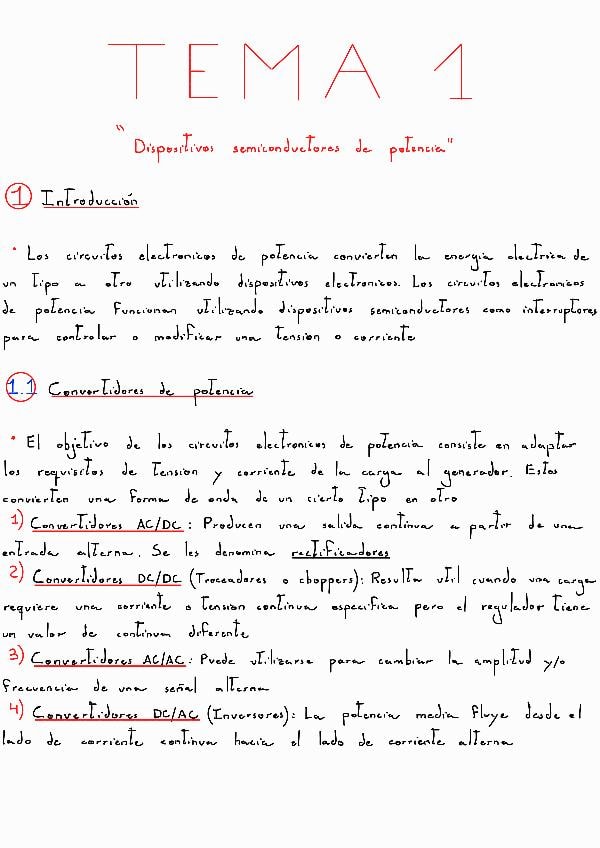 TEMA 1
"Dispositivos semiconductores de potencia"
1 Introducción
· Los circuitos electronicos de potencia convierten la energia electrica de
un tipo a otro utilizando dispositivos electronicos. Los circuitos electronicos
de potencia funcionan utilizando dispositivos semiconductores como interruptores
para controlar o modificar una tension o corriente
1.1 Convertidores de potencia
· El objetivo de los circuitos electronicos de potencia consiste en adaptar
los requisitos de tension y corriente de la carga al generador. Estos
convierten una forma de onda de un cierto tipo en otro
1) Convertidores AC/DC: Producen una salida continua a partir de una
entrada alterna. Se les denomina rectificadores
2) Convertidores DC/DC (Troceadores o choppers): Resulta util cuando una carga
requiere una corriente o tension continua especifica pero el regulador tiene
un valor de continua diferente
3) Convertidores AC/AC: Puede utilizarse para cambiar la amplitud y/o
frecuencia de una señal alterna
4) Convertidores DC/AC (Inversores): La potencia media fluye desde el
lado de corriente continua hacia el lado de corriente alterna